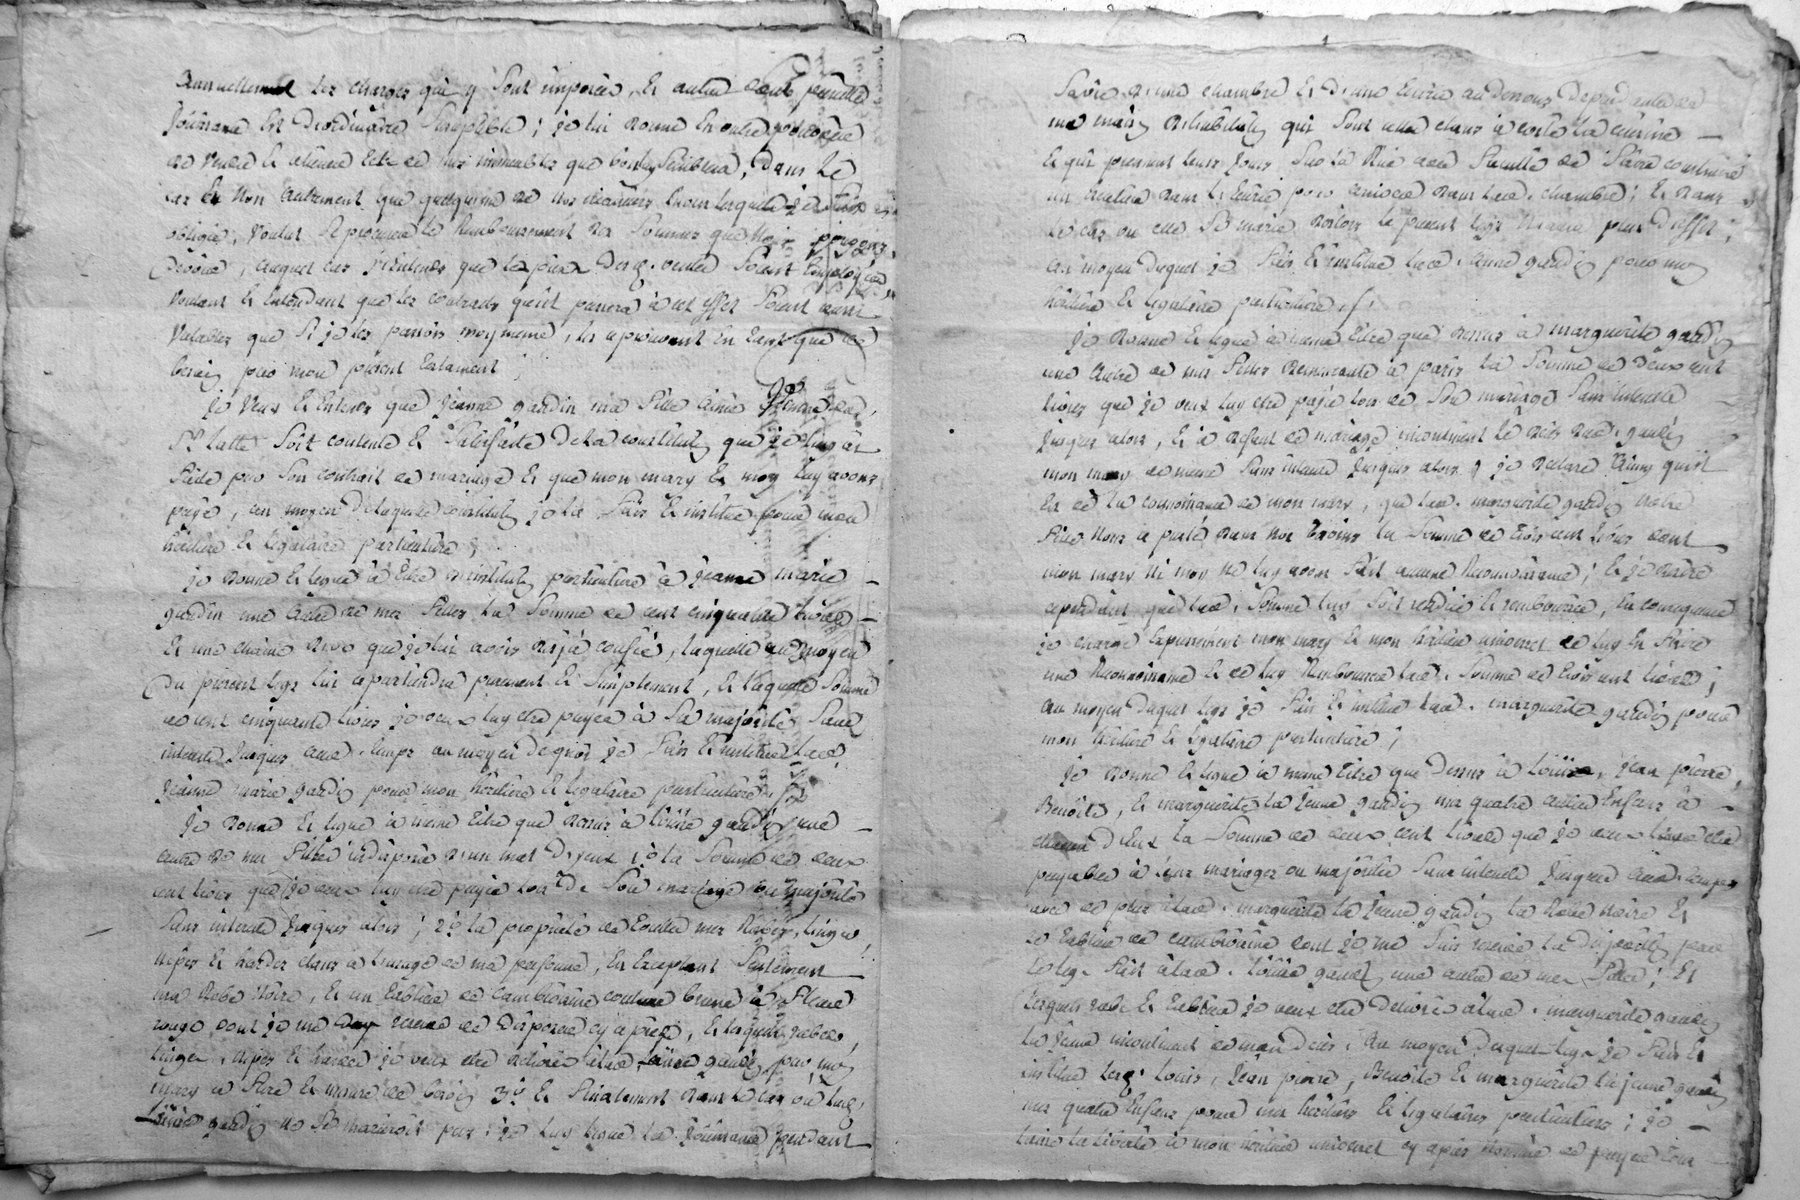 annuellement les charges qui y sont imposées, et autre dont pareille
jouissance est d'ordinaire susceptible; je lui donne en outre pouvoir
de vendre et aliener de mes immeubles que bon luy semblera, dans le
cas et non autrement que quelqu'un de nos creanciers envers lesquels je suis
obligée, voulut se procurer le remboursement des sommes que nous
auquel cas j'entends que le prix desd. ventes soient employées
voulant et entendant que les contracts qu'il passera à cet effet soient aussi
valables que si je les passois moy meme, les aprouvant en tant que de
besoin par mon present testament;
Je veux et entends que jeanne gardin ma fille ainée femme du d.
Sr. latte soit contente et satisfaite de la constitution que je luy ai
faite par son contrait de mariage et que mon mary et moy luy avons
payé, au moyen de laquelle constitution je la fais et institue pour mon
héritiere et légataire particuliere;
je donne et legue à titre d'institution particuliere à jeanne marie
gardin une autre de mes filles la somme de cent cinquante livres
et une chaine d'or que je lui avois déjà confié, laquelle au moyen
du présent legs lui apartiendra purement et simplement, et laquelle somme
de cent cinquante livres je veux luy etre payée à sa majorité sans
interets jusques aud. temps au moyen de quoi je fais et institue lad.
jeanne marie gardin pour mon héritiere et legataire particuliere
Je donne et legue à meme titre que dessus à loüise gardin une
autre de mes filles indisposée d'un mal d'yeux 1º la somme de deux
cent livres que je veux luy etre payée lors de son mariage ou majorité
sans interets jusques alors; 2º la propriété de toutes mes robes, linges,
nipes et hardes dans à l'usage de ma personne, en exceptant seulement
ma robe noire, et un tablier de couleur brune à fleurs
rouge dont je me reserve de disposer cy après, et lesquels robes,
linges, nipes et hardes je veux etre delivrés à lad. loüise gardin par mon
mary à fure et mesure de besoin 3º et finalement dans le cas où lad.
Loüise gardin ne se marieroit pas, je luy legue la joüissance pendant
sa vie d'une chambre et d'une ecurie au dessous dependante de
ma maison d'habitation qui sont celles à coté la cuisine
et qui prennent leurs jours sur la rue avec faculté de faire construire
un escalier dans l'ecurie pour monter dans lad. chambre; et dans
le cas ou elle se marie alors le present legs n'aura plus d'effet;
au moyen duquel je fais et institue lad. gardin pour mon
héritiere et legataire particuliere
Je donne et legue à meme titre que dessus à marguerite gardin
une autre de mes filles demeurante à paris la somme de deux cent
livres que je veux luy etre payée lors de son mariage sans interets
jusques alors, et à defaut de mariage incontinent le décès dud. gardin
mon mary de meme sans interets jusques alors; je declare aussy qu'il
est de la connoissance de mon mary, que lad. marguerite gardin notre
fille nous a preté dans nos besoins la somme de trois cent livres dont
mon mary ni moy ne luy avons fait aucune reconnoissance; et je desire
cependant que lad. somme luy soit rendüe et remboursée, en consequence
je charge expressement mon mary et mon héritier universel de luy en faire
une reconnoissance et de luy rembourser lad. somme de trois cent livres;
au moyen duquel legs je fais et institue lad. marguerite gardin pour
mon héritiere et legataire particuliere;
Je donne et legue à meme titre que dessus à Loüis, jean pierre,
Benoite, et marguerite la jeune gardin mes quatre autres enfans à
chacun d'eux la somme de deux cent livres que je veux leur etre
payables à leurs mariages ou majorités sans interets jusques aud. temps
avec de plus à lad. marguerite la jeune gardin la robe noire et
le tablier de dont je me suis reservé la disposition par
le legs fait à lad. loüise gardin une autre de mes filles; et
lesquels robe et tablier je veux etre delivrés à lad. marguerite gardin
la jeune incontinent de mon decès. Au moyen desquels legs je fais et
institue lesd. Louis, jean pierre, Benoite et marguerite la jeune gardin
mes quatre enfans pour mes héritiers et legataires particuliers; je
laisse la liberté à mon héritier universel cy après nommé de payer tous